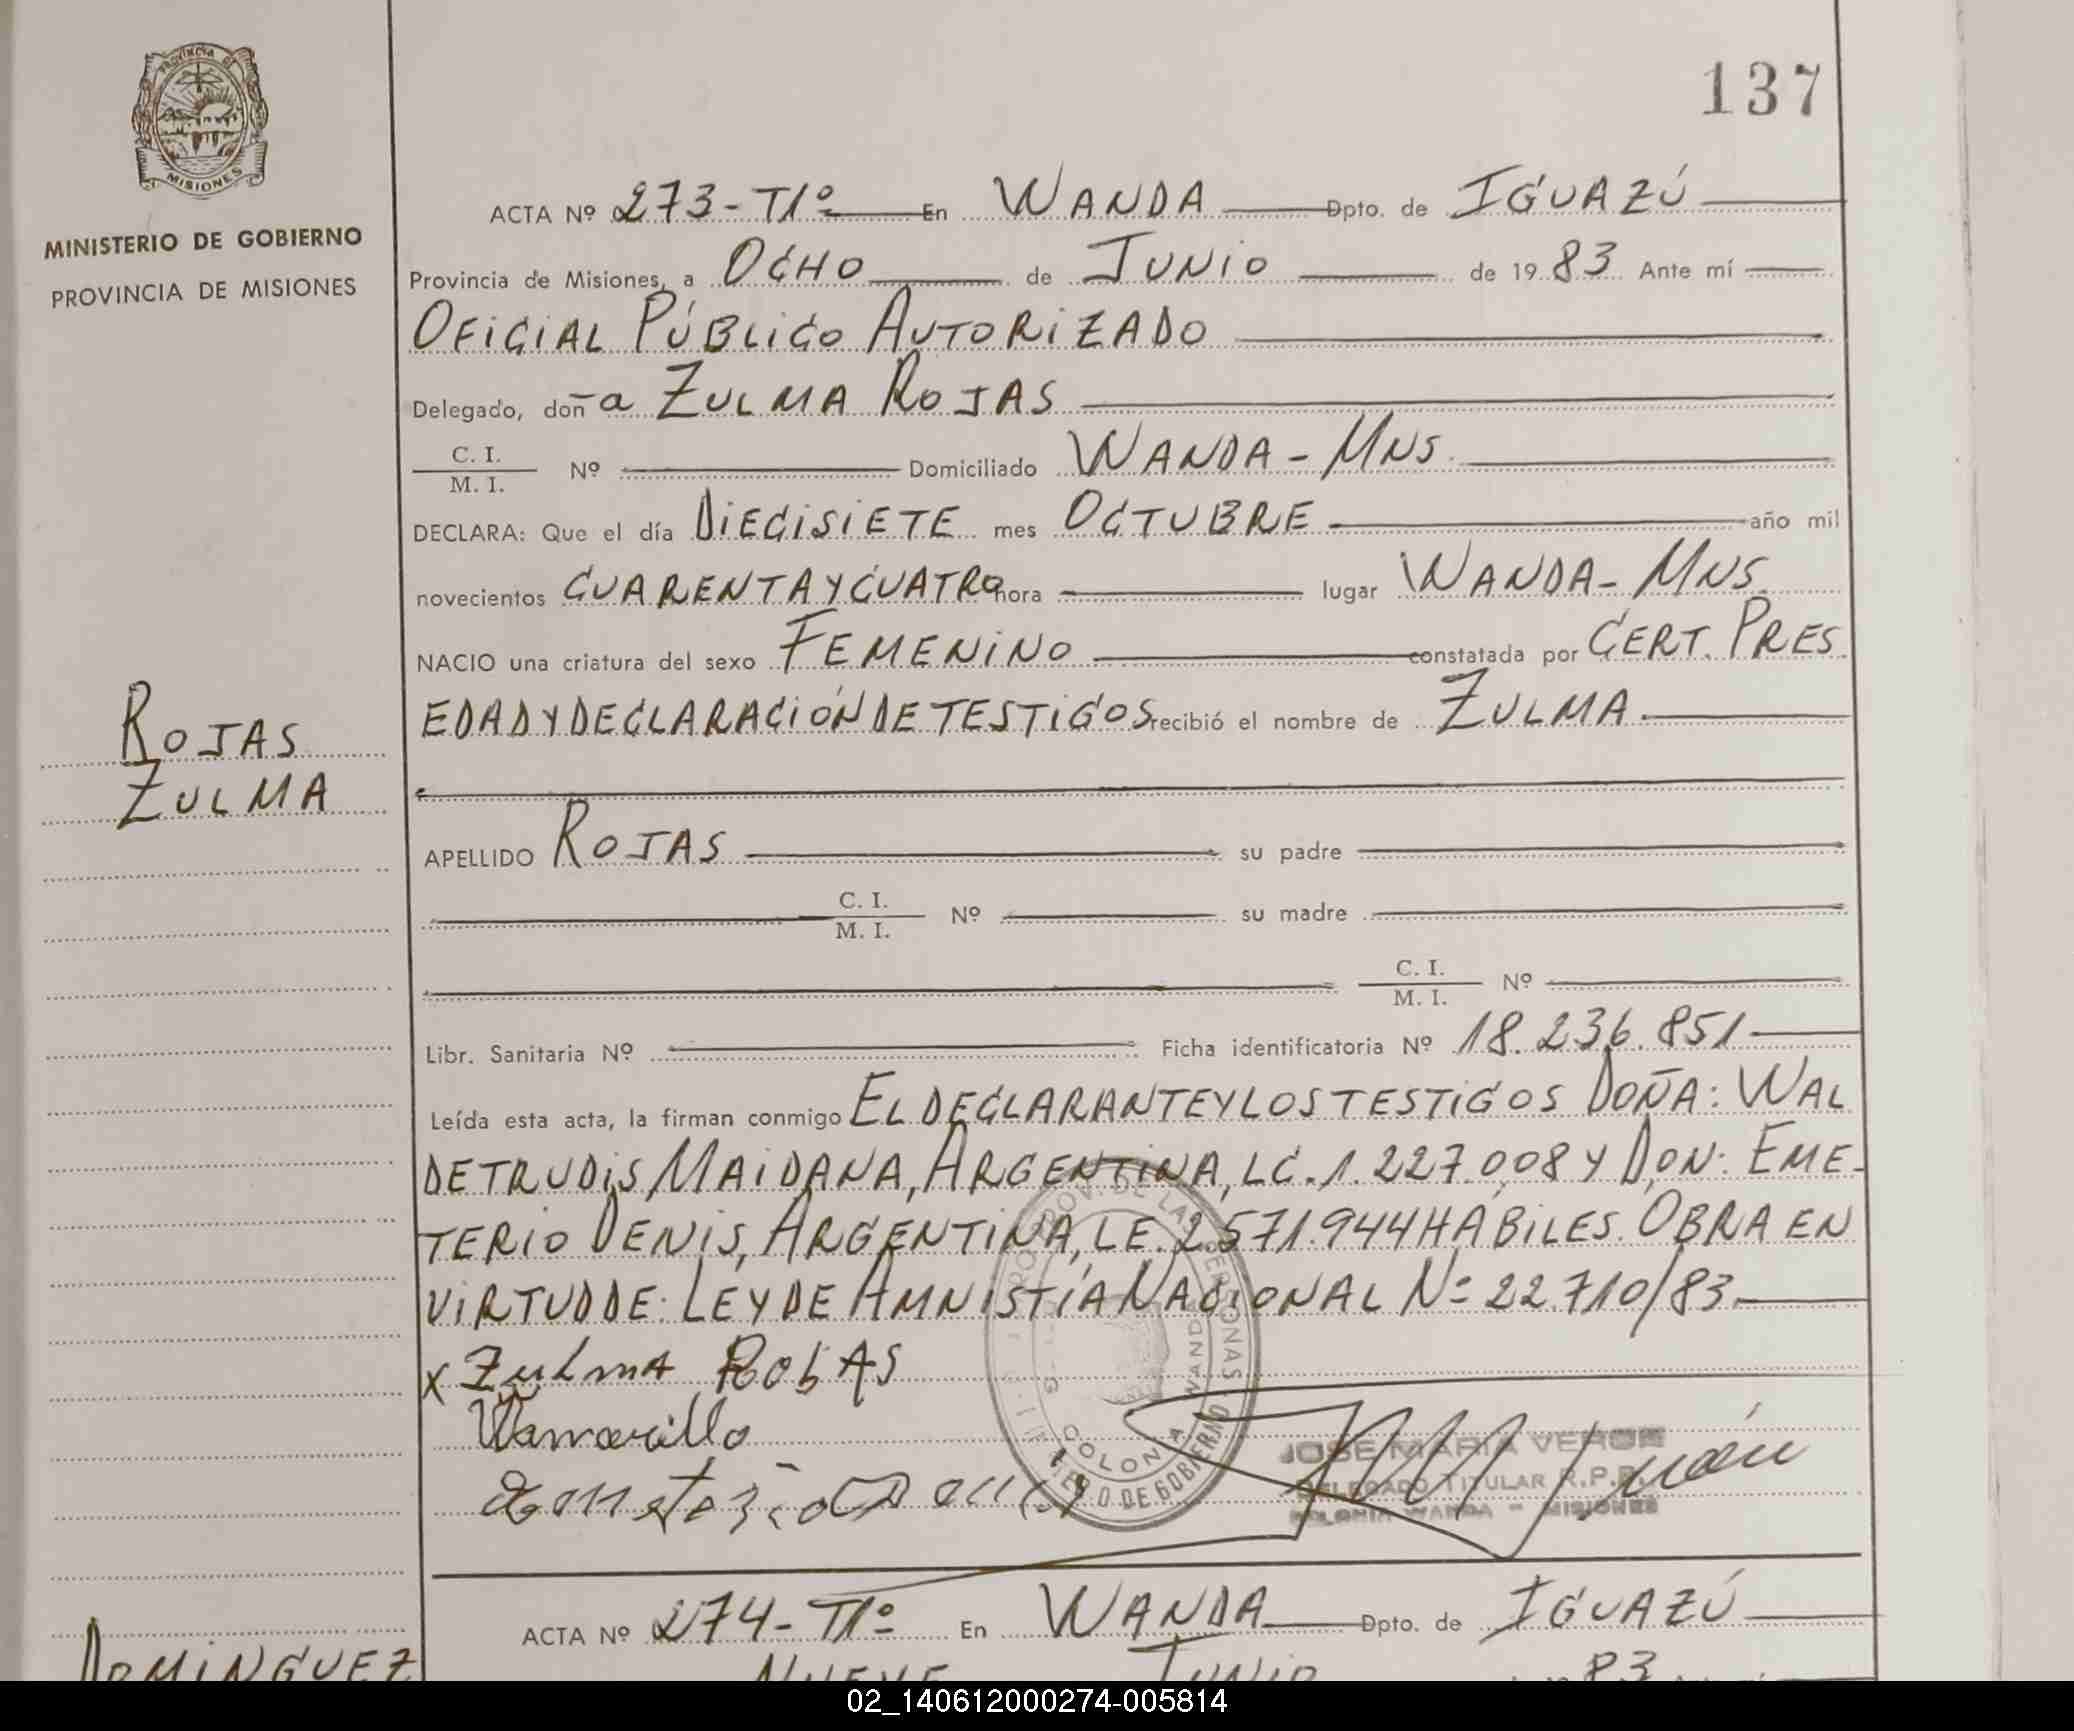 137
PROVINCIA DE
MISIONES
MINISTERIO DE GOBIERNO
PROVINCIA DE MISIONES
ACTA Nº 273-T1º En WANDA Dpto. de IGUAZÚ
Provincia de Misiones, a OCHO de JUNIO de 1983 Ante mí
OFICIAL PÚBLICO AUTORIZADO
Delegado, don a ZULMA ROJAS
C. I.
M. I. Nº Domiciliado WANDA - MNS.
DECLARA: Que el día DIECISIETE mes OCTUBRE año mil
novecientos CUARENTA Y CUATRO hora lugar WANDA - MNS.
NACIO una criatura del sexo FEMENINO constatada por CERT. PRES
EDAD Y DECLARACIÓN DE TESTIGOS recibió el nombre de ZULMA
ROJAS
ZULMA
APELLIDO ROJAS su padre
C. I.
M. I. Nº su madre
C. I.
M. I. Nº
Libr. Sanitaria Nº Ficha identificatoria Nº 18.236.851
Leída esta acta, la firman conmigo EL DECLARANTE Y LOS TESTIGOS DOÑA: WAL
DETRUDIS MAIDANA, ARGENTINA, LC. 1.227.008 Y DON: EME-
TERIO DENIS, ARGENTINA, LE. 2.571.944 HÁBILES. OBRA EN
VIRTUD DE: LEY DE AMNISTÍA NACIONAL Nº 22.710/83.
x Zulma ROJAS
PROV. DE LAS PERSONAS
COLONIA WANDA
DE GOBIERNO
JOSE MARIA
DELEGADO TITULAR R.P.P.
COLONIA WANDA - MISIONES
ACTA Nº 274-T1º En WANDA Dpto. de IGUAZÚ
DOMINGUEZ
NUEVE JUNIO 83
02_140612000274-005814